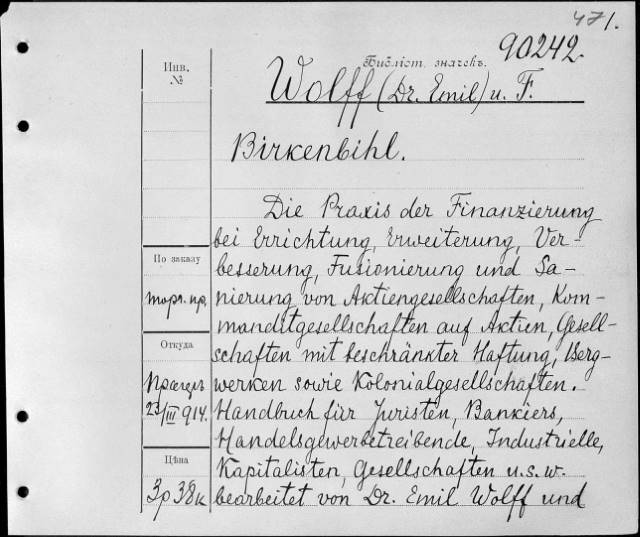 471.
90242.
Библіот. значекъ.
Инв.
№
Wolff (Dr. Emil) u. F.
Birkenbihl.
Die Praxis der Finanzierung
bei Errichtung, Erweiterung, Ver-
besserung, Fusionierung und Sa-
nierung von Aktiengesellschaften, Kom-
manditgesellschaften auf Aktien, Gesell-
schaften mit beschränkter Haftung, Berg-
werken sowie Kolonialgesellschaften.
Handbuch für Juristen, Bankiers,
Handelsgewerbetreibende, Industrielle,
Kapitalisten, Gesellschaften u.s.w.
bearbeitet von Dr. Emil Wolff und
По заказу
торг. пр.
Откуда
23/III 914.
Цѣна
3р 38к